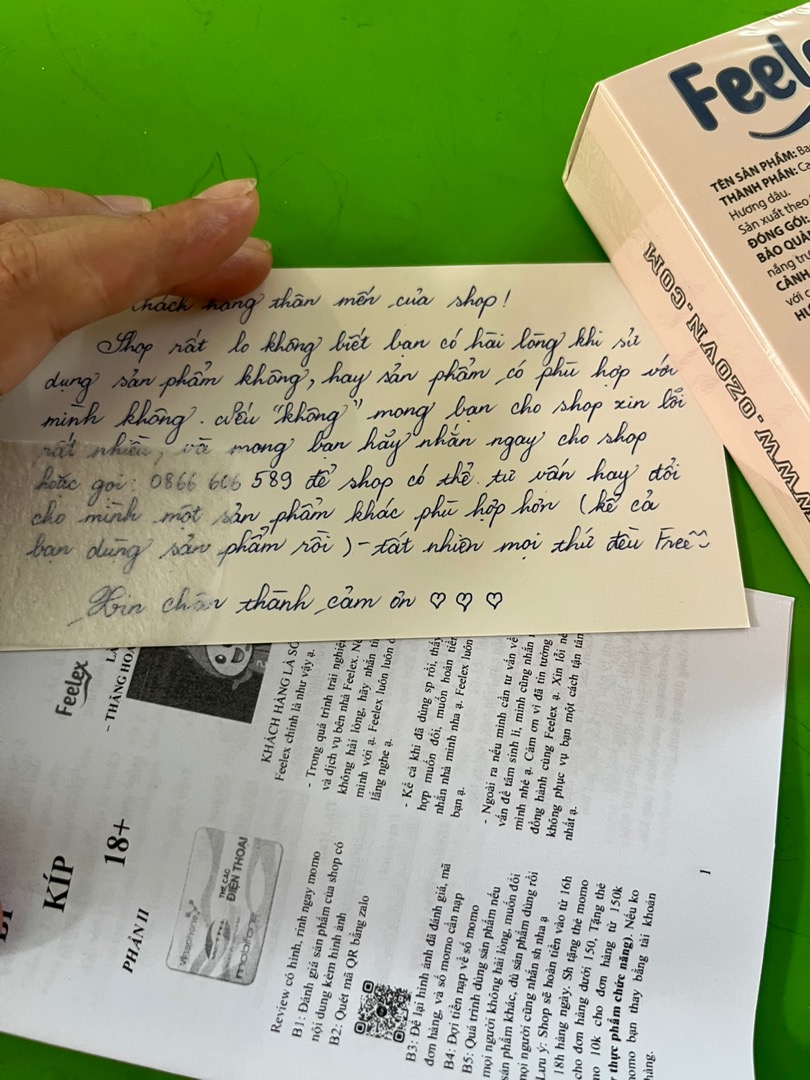 khách hàng thân mến của shop!
Shop rất lo không biết bạn có hài lòng khi sử
dụng sản phẩm không, hay sản phẩm có phù hợp với
mình không. Nếu "không" mong bạn cho shop xin lỗi
rất nhiều, và mong bạn hãy nhắn ngay cho shop
hoặc gọi: 0866 606 589 để shop có thể tư vấn hay đổi
cho mình một sản phẩm khác phù hợp hơn (kể cả
bạn dùng sản phẩm rồi) - tất nhiên mọi thứ đều Free
Xin chân thành cảm ơn ♡ ♡ ♡
Feelex
TÊN SẢN PHẨM:
THÀNH PHẦN:
Hương dâu.
Sản xuất theo
ĐÓNG GÓI:
BẢO QUẢN
nắng
CẢNH
với
WWW.OZOVN.COM
Feelex
- THĂNG HOA
KÍP
18+
PHẦN II
Vinaphone
THẺ CÀO
ĐIỆN THOẠI
mobifone
KHÁCH HÀNG LÀ
Feelex chính là như vậy ạ.
- Trong quá trình trải nghiệm
và dịch vụ bên nhà Feelex.
không hài lòng, hãy nhắn
mình với ạ. Feelex luôn luôn
lắng nghe ạ.
- Kể cả khi đã dùng sp rồi, thấy
hợp muốn đổi, muốn hoàn tiền
nhắn nhà mình nha ạ. Feelex luôn
bạn ạ.
- Ngoài ra nếu mình cần tư vấn về
vấn đề tâm sinh lí, mình cũng nhắn
mình nhé ạ. Cảm ơn vì đã tin tưởng
đồng hành cùng Feelex ạ. Xin lỗi
không phục vụ bạn một cách tận
nhất ạ.
Review có hình, rinh ngay momo
B1: Đánh giá sản phẩm của shop có
nội dung kèm hình ảnh
B2: Quét mã QR bằng zalo
B3: Để lại hình ảnh đã đánh giá, mã
đơn hàng, và số momo cần nạp
B4: Đợi tiền nạp về số momo
B5: Quá trình dùng sản phẩm nếu
mọi người không hài lòng, muốn đổi
sản phẩm khác, dù sản phẩm dùng rồi
mọi người cũng nhắn sh nha ạ
Lưu ý: Shop sẽ hoàn tiền vào từ 16h
18h hàng ngày. Sh tặng thẻ momo
cho đơn hàng dưới 150, Tặng thẻ
mo 10k cho đơn hàng từ 150k
thực phẩm chức năng). Nếu ko
momo bạn thay bằng tài khoản
hàng.
1